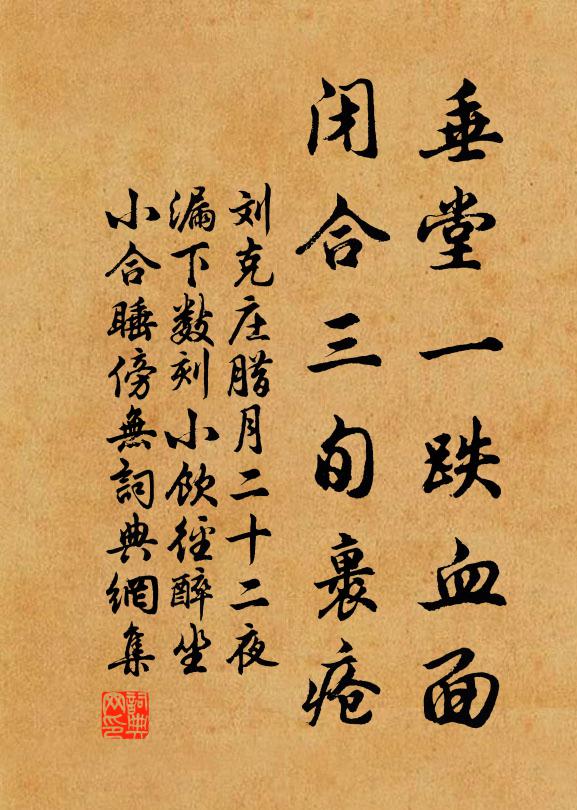 垂堂一跌血面
闭合三旬裹疮
刘克庄腊月二十二夜
漏下数刻小饮径醉坐
小合睡傍無詞典網集
詞典网印